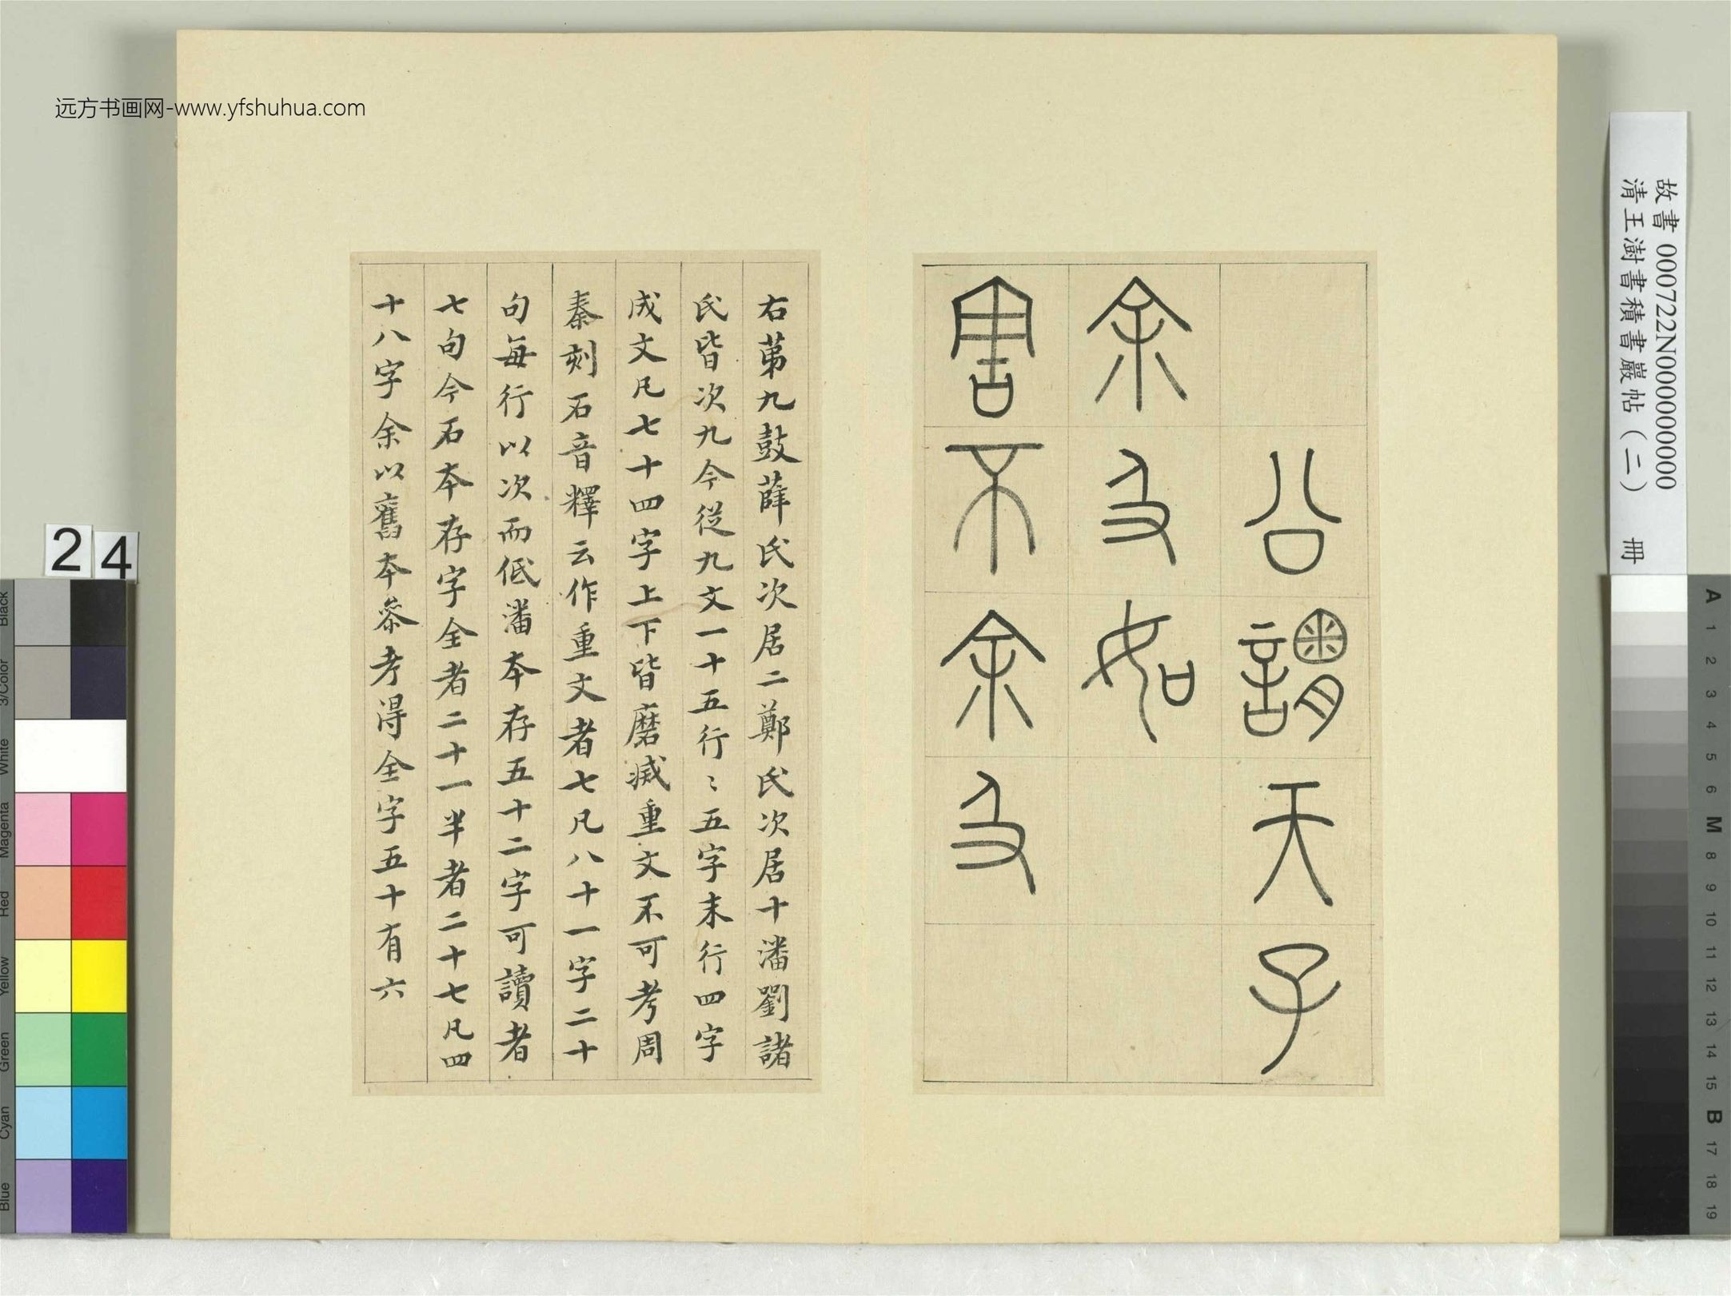 远方书画网-www.yfshuhua.com
公謂天子
余及如
害不余及
右苐九鼓薛氏次居二鄭氏次居十潘劉諸
氏皆次九今從九文一十五行〻五字末行四字
成文凡七十四字上下皆磨滅重文不可考周
秦刻石音釋云作重文者七凡八十一字二十
句每行以次而低潘本存五十二字可讀者
七句今石本存字全者二十一半者二十七凡四
十八字余以舊本叅考淂全字五十有六
故書 000722N000000000
清王澍書積書巖帖(二) 冊
24
Black
3/Color
White
Magenta
Red
Yellow
Green
Cyan
Blue
A 1 2 3 4 5 6 M 8 9 10 11 12 13 14 15 B 17 18 19